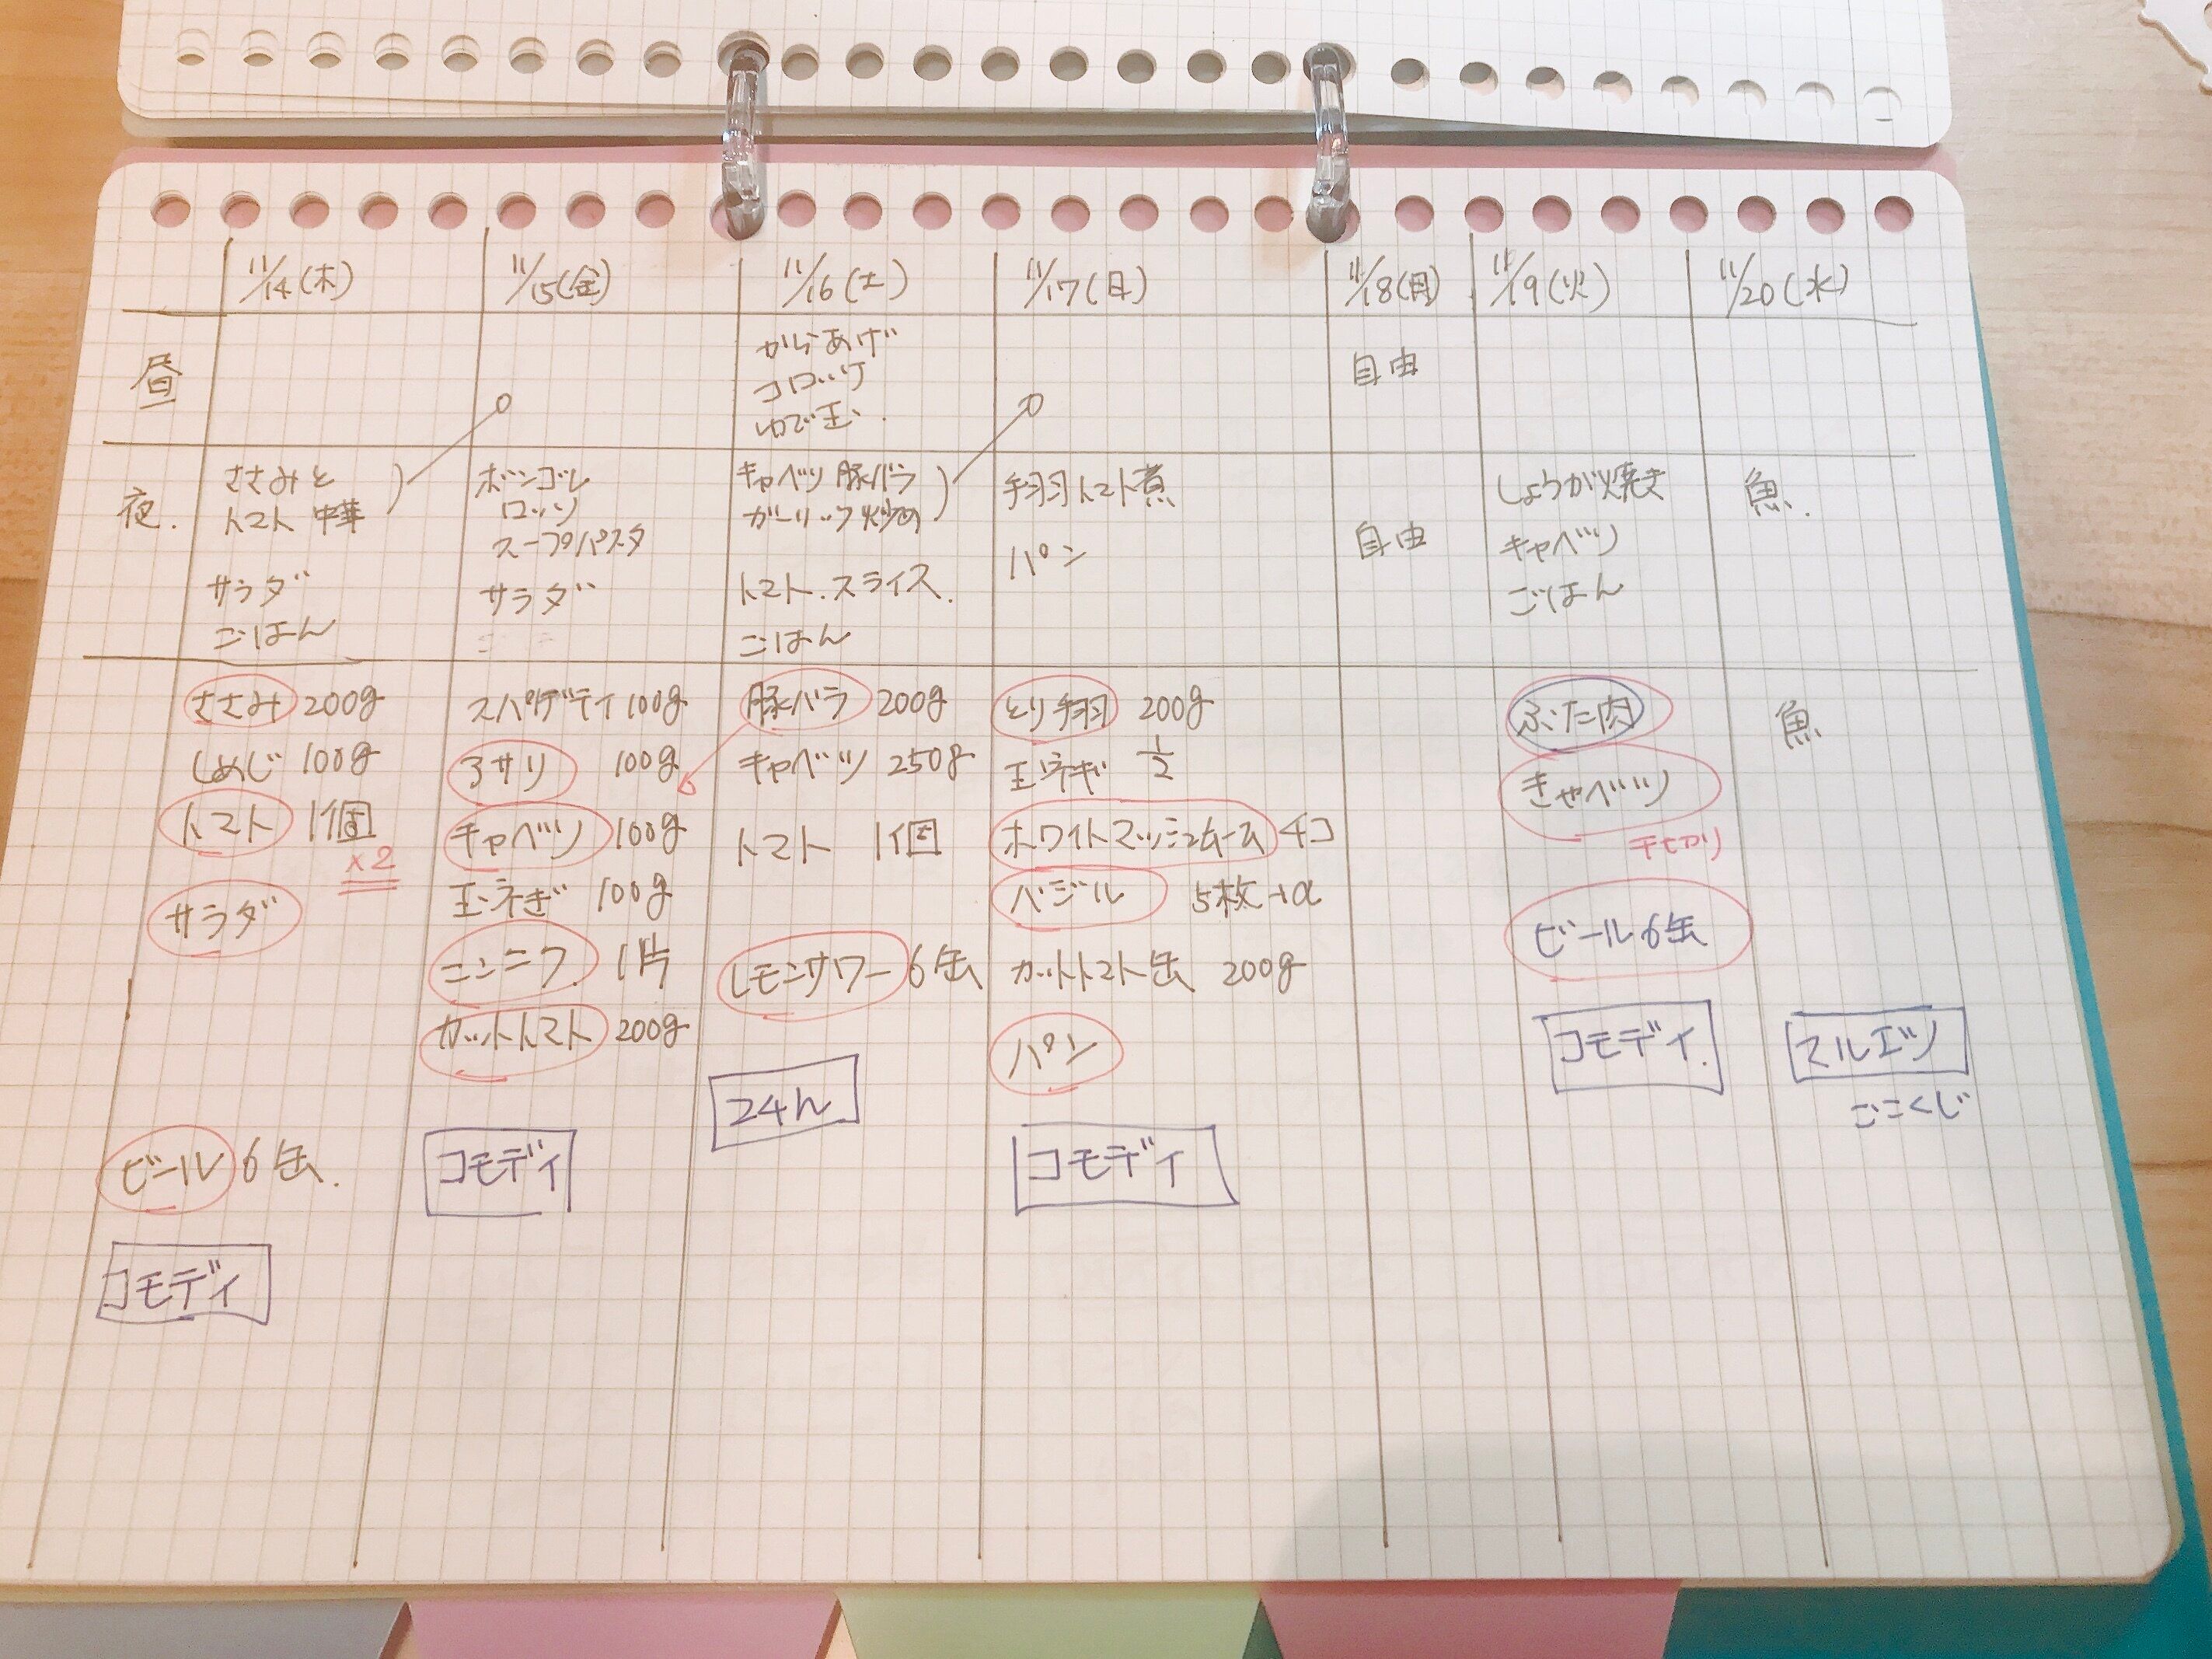 11/14(木) 11/15(金) 11/16(土) 11/17(日) 11/18(月) 11/19(火) 11/20(水)
昼
からあげ
コロッケ
ゆで玉
自由
夜.
ささみと
トマト 中華
サラダ
ごはん
ボンゴレ
ロッソ
スープパスタ
サラダ
キャベツ 豚バラ
ガーリック炒め
トマト.スライス.
ごはん
手羽トマト煮
パン
自由
しょうが焼き
キャベツ
ごはん
魚.
ささみ 200g
しめじ 100g
トマト 1個
×2
サラダ
ビール 6缶.
コモディ
スパゲティ 100g
アサリ 100g
キャベツ 100g
玉ネぎ 100g
ニンニク. 1片
カットトマト 200g
コモディ
豚バラ 200g
キャベツ 250g
トマト 1個
レモンサワー 6缶
24h
とり手羽 200g
玉ネぎ 1/2
ホワイトマッシュルーム 4コ
バジル 5枚+α
カットトマト缶 200g
パン
コモディ
ぶた肉
きゃベツ
ビール6缶
コモディ.
魚
マルエツ
ここくじ